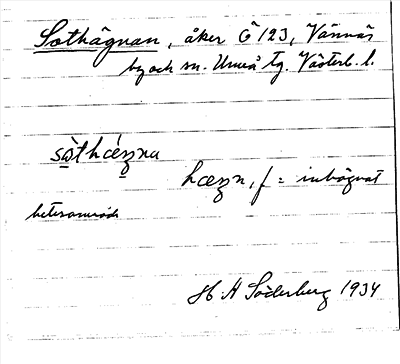 Sothägnan, åker G 123, Vännäs
by och sn. Umeå tg. Västerb. l.
sọ̀thǽŋna
hæŋn, f = inhägnat
betesområde
H. A Söderberg 1934